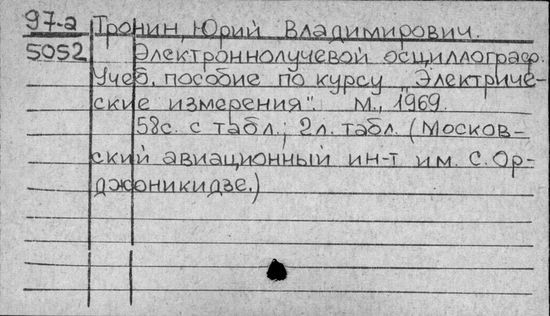 97-2 Тронин, Юрий Владимирович.
5052 Электроннолучевой осциллограф.
Учеб. пособие по курсу „Электриче-
ские измерения". М., 1969.
58с. с табл.; 2л. табл. (Москов-
ский авиационный ин-т им. С. Ор-
джоникидзе.)